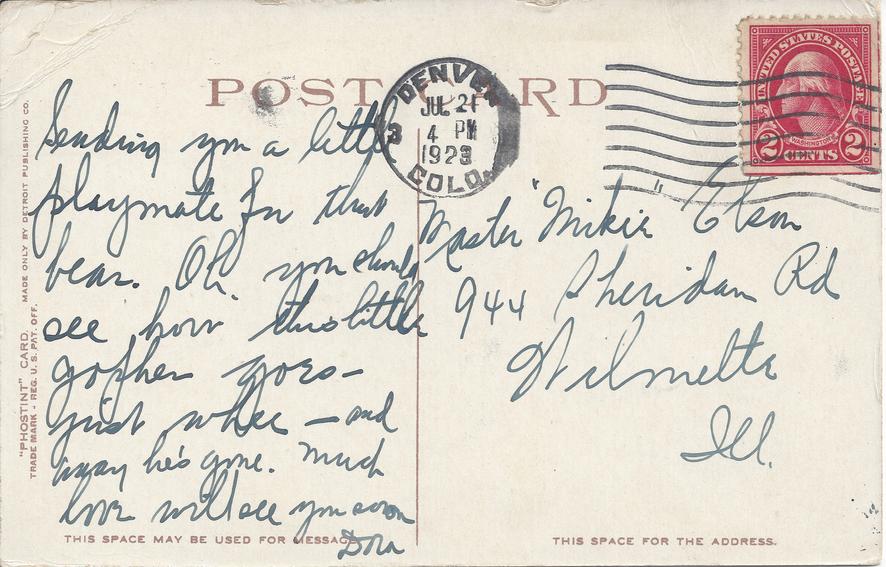 POST CARD
DENVER
JUL 21
4 PM
1923
COLO.
3
UNITED STATES POSTAGE
WASHINGTON
2 CENTS 2
Sending you a little
playmate for that
bear. Oh, you should
see how this little
gopher goes –
just whee – and
away he's gone. Much
love will see you soon
Dora
Master "Mikie" Elson
944 Sheridan Rd
Wilmette
Ill.
"PHOSTINT" CARD. MADE ONLY BY DETROIT PUBLISHING CO.
TRADE MARK - REG. U.S. PAT. OFF.
THIS SPACE MAY BE USED FOR MESSAGE
THIS SPACE FOR THE ADDRESS.